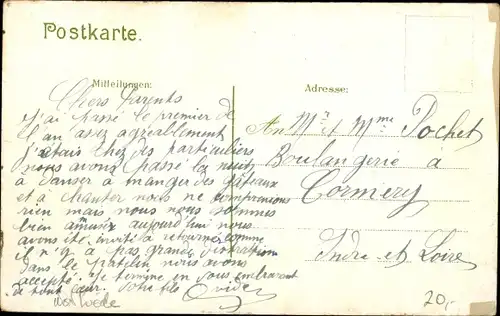 Postkarte.
Mitteilungen:
Chers Parents
J'ai passé le premier de
l'an assez agréablement
J'étais chez des particuliers
nous avons passé la nuit
à danser à manger des gâteaux
et à chanter nous ne comprenions
rien mais nous nous sommes
bien amusez aujourd'hui nous
avons été invité à retourner comme
il n'y a pas grande
dans le patelin nous avons
accepté. Je termine en vous embrassant
de tout cœur. Votre fils Ovide
Adresse:
An Mr et Mme Pochet
Boulangerie à
Cormery
Indre et Loire
20,-